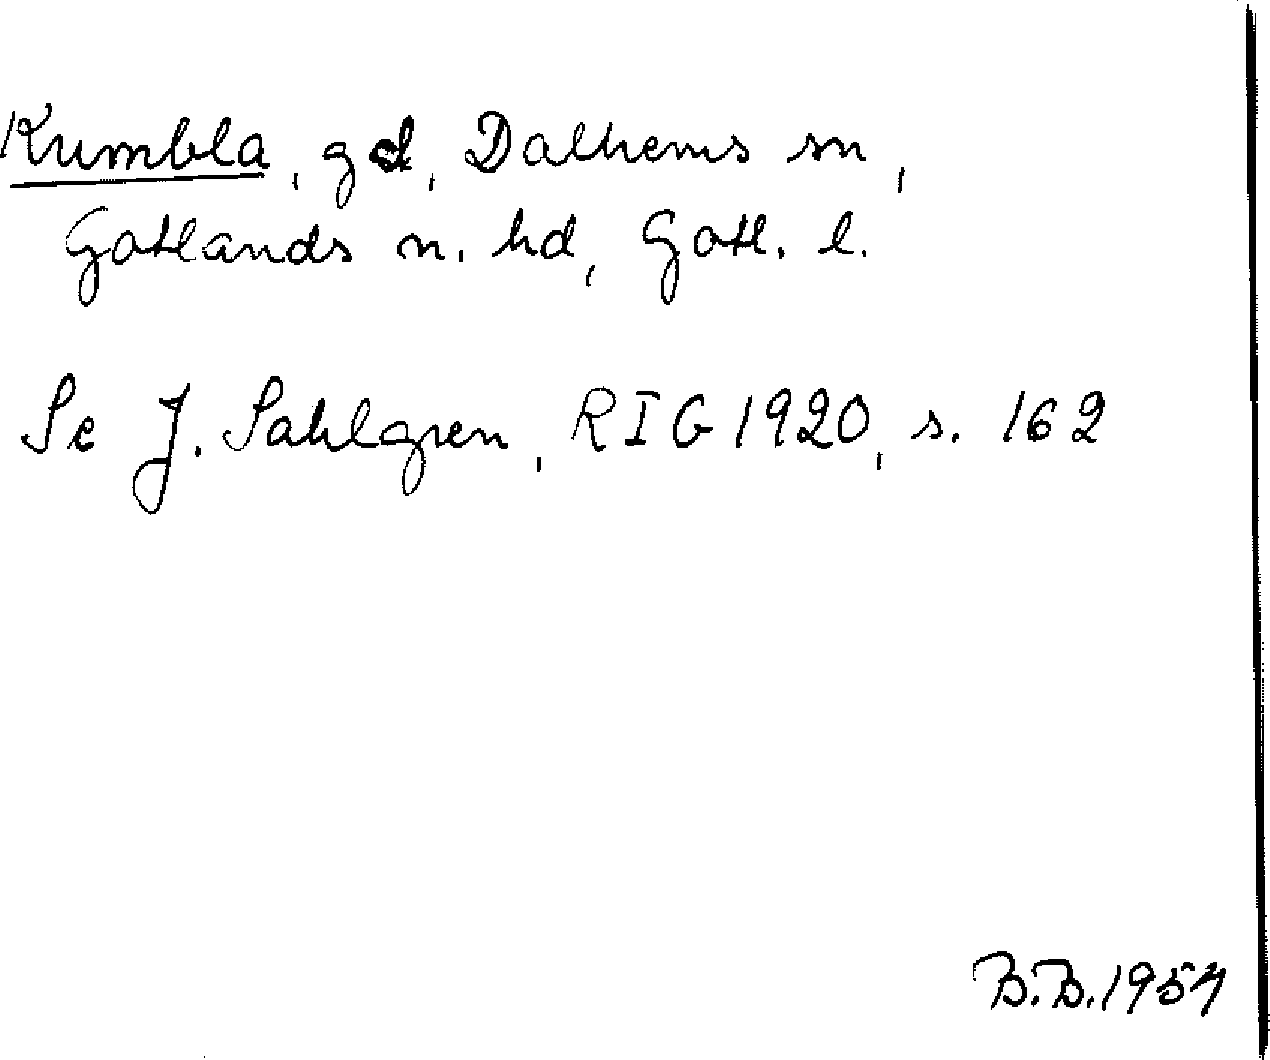 Kumbla, gd, Dalhems sn,
Gotlands n. hd, Gotl. l.
Se J. Sahlgren, RIG 1920, s. 162
B.B. 1957